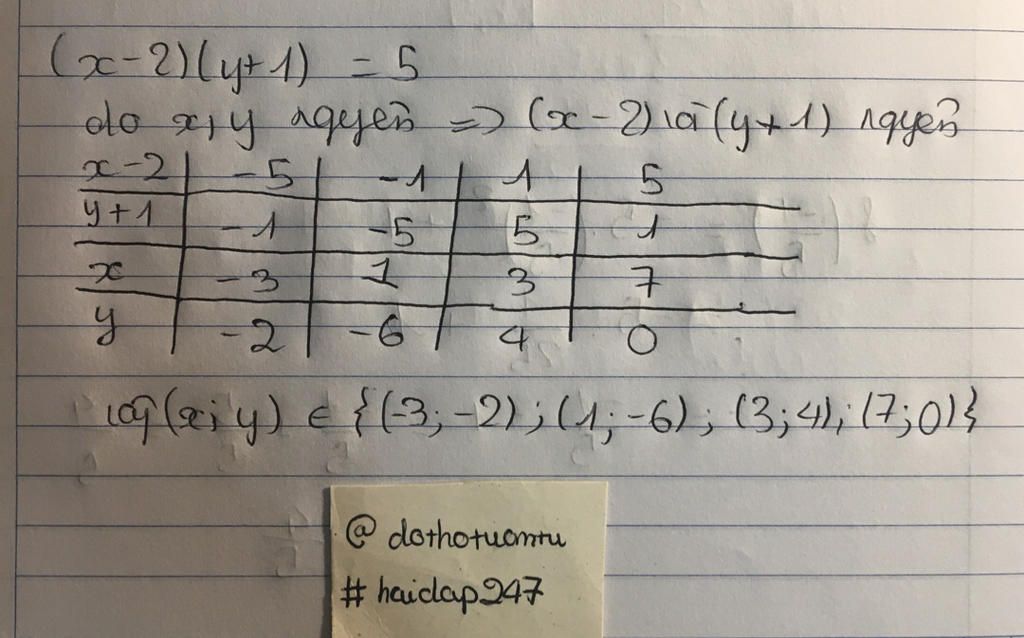 (x-2)(y+1) = 5
do x, y nguyên => (x-2) và (y+1) nguyên
x-2 -5 -1 1 5
y+1 -1 -5 5 1
x -3 1 3 7
y -2 -6 4 0
Vậy (x; y) ∈ {(-3; -2); (1; -6); (3; 4); (7; 0)}
@ dothotuantu
# haidap247